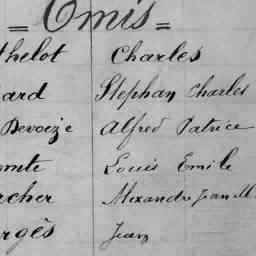 = Omis =
thelot Charles
ard Stephan Charles
Devoize Alfred Patrice
omte Louis Emile
rcher Alexandre Jean M
rgès Jean